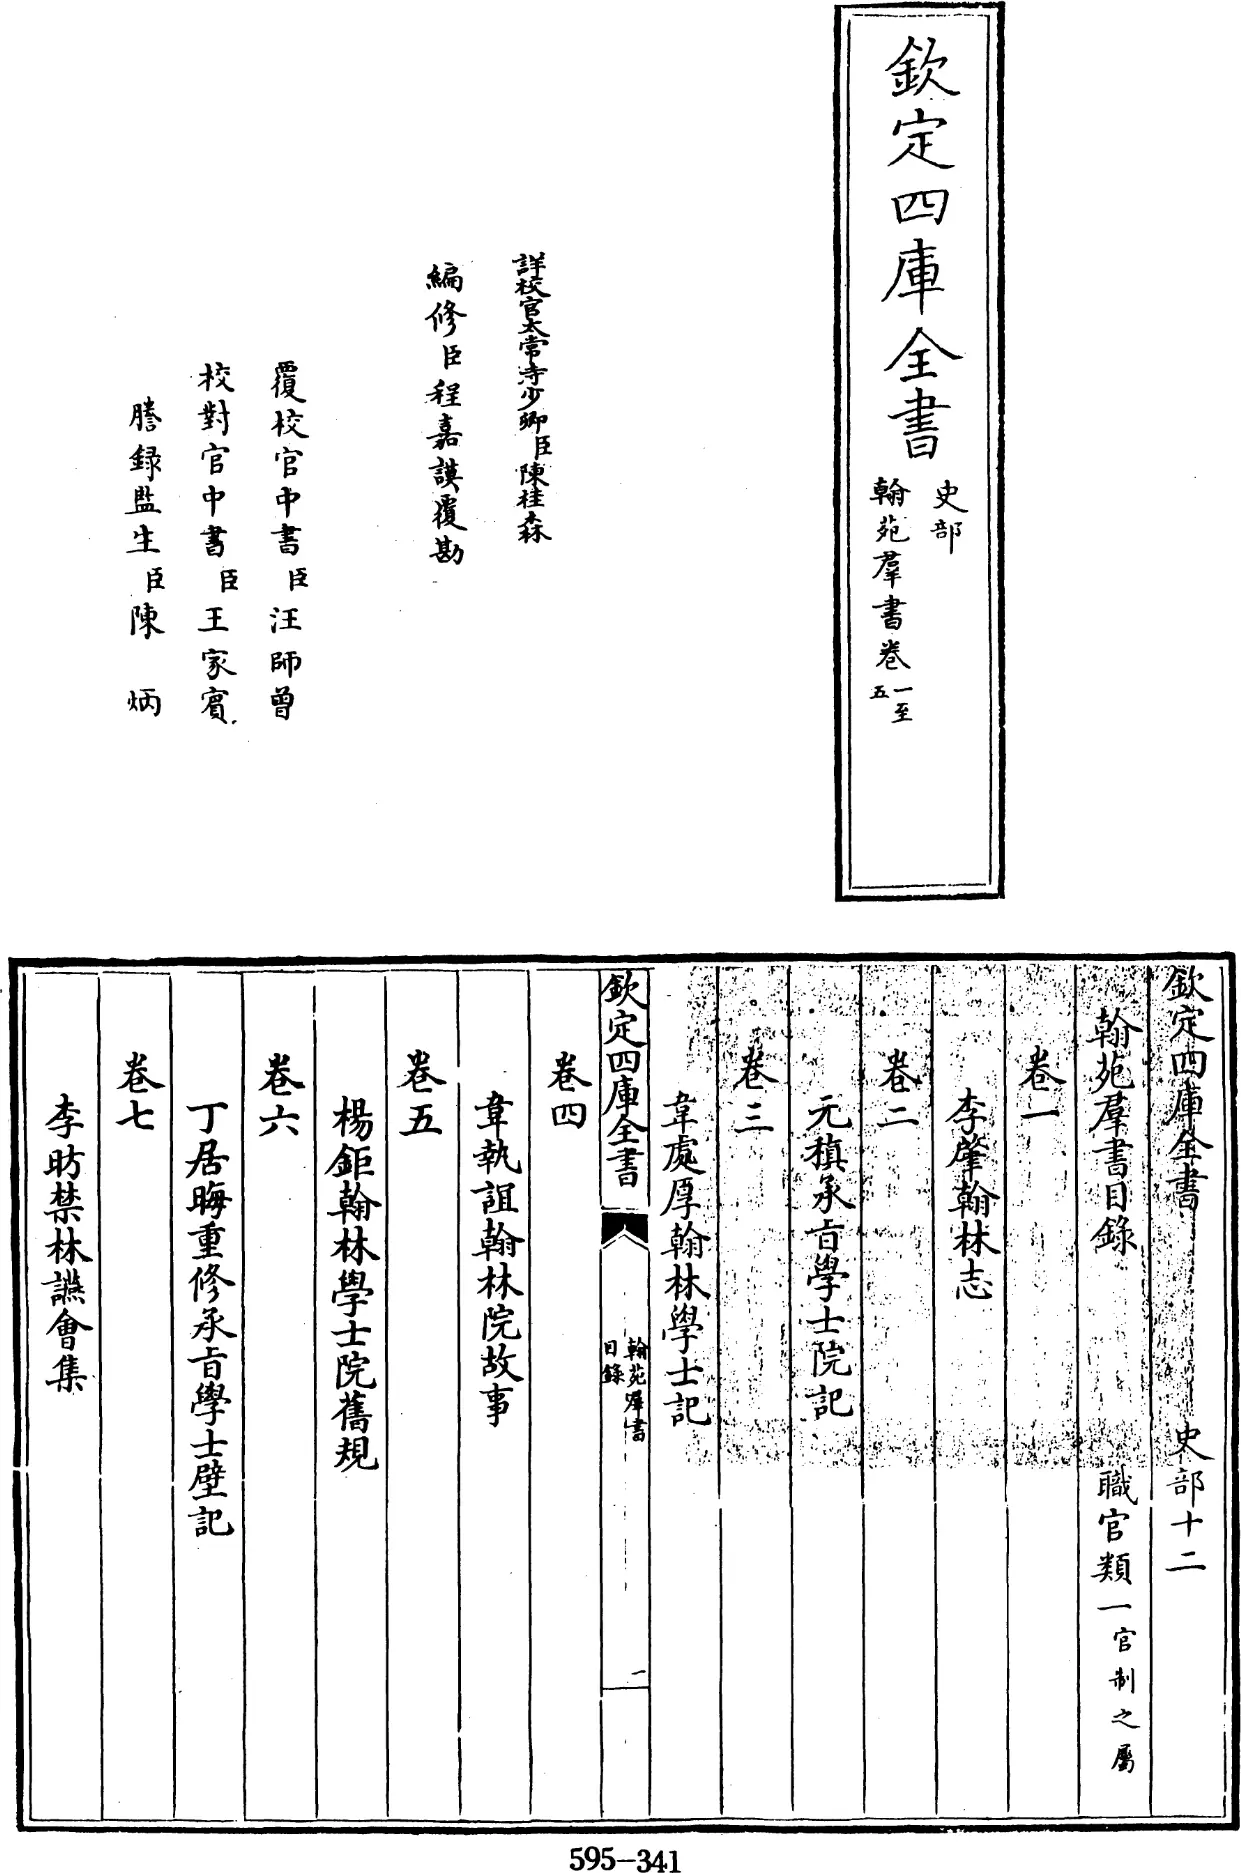 欽定四庫全書
史部
翰苑羣書卷一至五
詳校官太常寺少卿臣陳桂森
編修臣程嘉謨覆勘
覆校官中書臣汪師曾
校對官中書臣王家賓
謄録監生臣陳炳
欽定四庫全書 史部十二
翰苑羣書目錄 職官類一官制之屬
卷一
李肇翰林志
卷二
元稹承旨學士院記
卷三
韋處厚翰林學士記
欽定四庫全書 翰苑羣書目錄 一
卷四
韋執誼翰林院故事
卷五
楊鉅翰林學士院舊規
卷六
丁居晦重修承旨學士壁記
卷七
李昉禁林讌會集
595-341